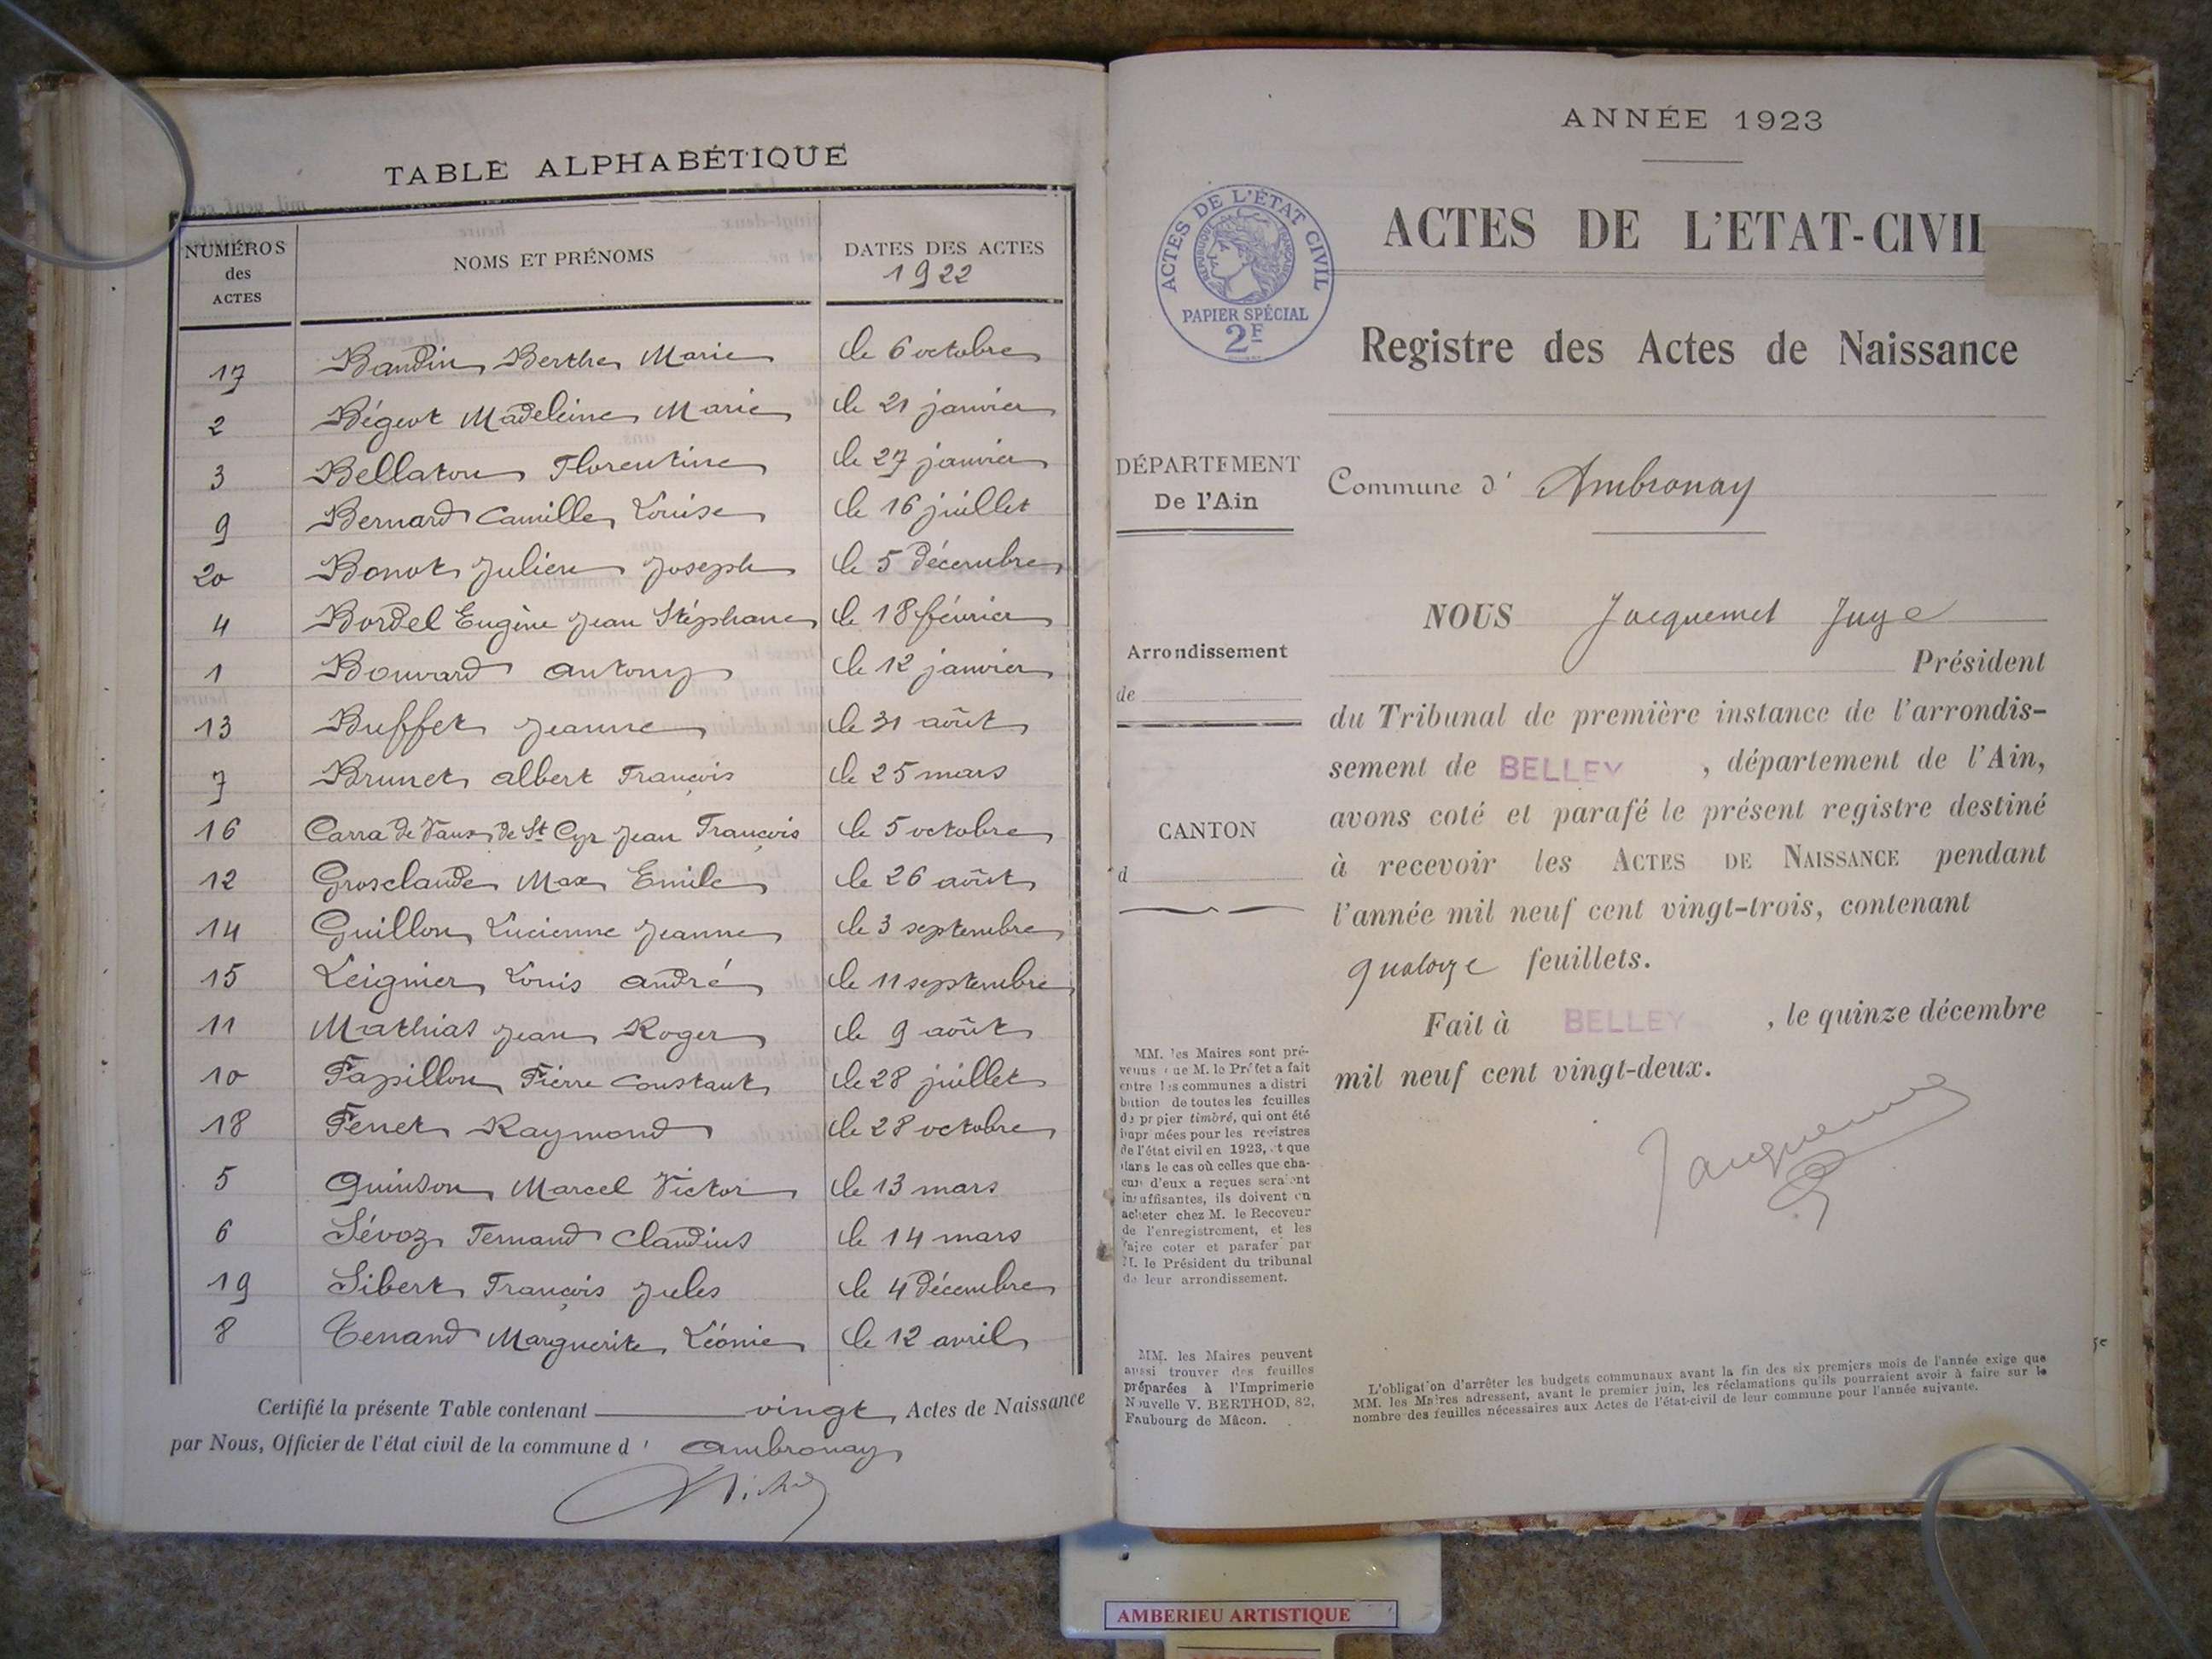 TABLE ALPHABÉTIQUE
NUMÉROS des ACTES NOMS ET PRÉNOMS DATES DES ACTES 1922
17 Baudin Berthe Marie le 6 octobre
2 Bégeot Madeleine Marie le 21 janvier
3 Bellaton Florentine le 27 janvier
9 Bernard Camille Louise le 16 juillet
20 Bonot Julien Joseph le 5 décembre
4 Bordel Eugène Jean Stéphane le 18 février
1 Bouvard Antony le 12 janvier
13 Buffet Jeanne le 31 août
7 Brunet Albert François le 25 mars
16 Carra de Vaux de St Cyr Jean François le 5 octobre
12 Grosclaude Max Emile le 26 août
14 Guillon Lucienne Jeanne le 3 septembre
15 Leignier Louis André le 11 septembre
11 Mathias Jean Roger le 9 août
10 Papillon Pierre Constant le 28 juillet
18 Penet Raymond le 28 octobre
5 Quinson Marcel Victor le 13 mars
6 Sévoz Fernand Claudius le 14 mars
19 Sibert François Jules le 4 décembre
8 Tenand Marguerite Léonie le 12 avril
Certifié la présente Table contenant vingt Actes de Naissance
par Nous, Officier de l'état civil de la commune d' Ambronay
ANNÉE 1923
ACTES DE L'ÉTAT CIVIL
RÉPUBLIQUE FRANÇAISE
PAPIER SPÉCIAL
2F
ACTES DE L'ETAT-CIVIL
Registre des Actes de Naissance
DÉPARTEMENT
De l'Ain
Commune d' Ambronay
Arrondissement
de
CANTON
d
NOUS Jacquemet Juge
Président
du Tribunal de première instance de l'arrondis-
sement de BELLEY , département de l'Ain,
avons coté et parafé le présent registre destiné
à recevoir les ACTES DE NAISSANCE pendant
l'année mil neuf cent vingt-trois, contenant
quatorze feuillets.
Fait à BELLEY , le quinze décembre
mil neuf cent vingt-deux.
Jacquemet
MM. les Maires sont pré-
venus que M. le Préfet a fait
entre les communes a distri
bution de toutes les feuilles
de papier timbré, qui ont été
imprimées pour les registres
de l'état civil en 1923, et que
dans le cas où celles que cha-
cun d'eux a reçues seraient
insuffisantes, ils doivent en
acheter chez M. le Receveur
de l'enregistrement, et les
faire coter et parafer par
M. le Président du tribunal
de leur arrondissement.
MM. les Maires peuvent
aussi trouver des feuilles
préparées à l'Imprimerie
Nouvelle V. BERTHOD, 82,
Faubourg de Mâcon.
L'obligation d'arrêter les budgets communaux avant la fin des six premiers mois de l'année exige que
MM. les Maires adressent, avant le premier juin, les réclamations qu'ils pourraient avoir à faire sur le
nombre des feuilles nécessaires aux Actes de l'état-civil de leur commune pour l'année suivante.
AMBERIEU ARTISTIQUE